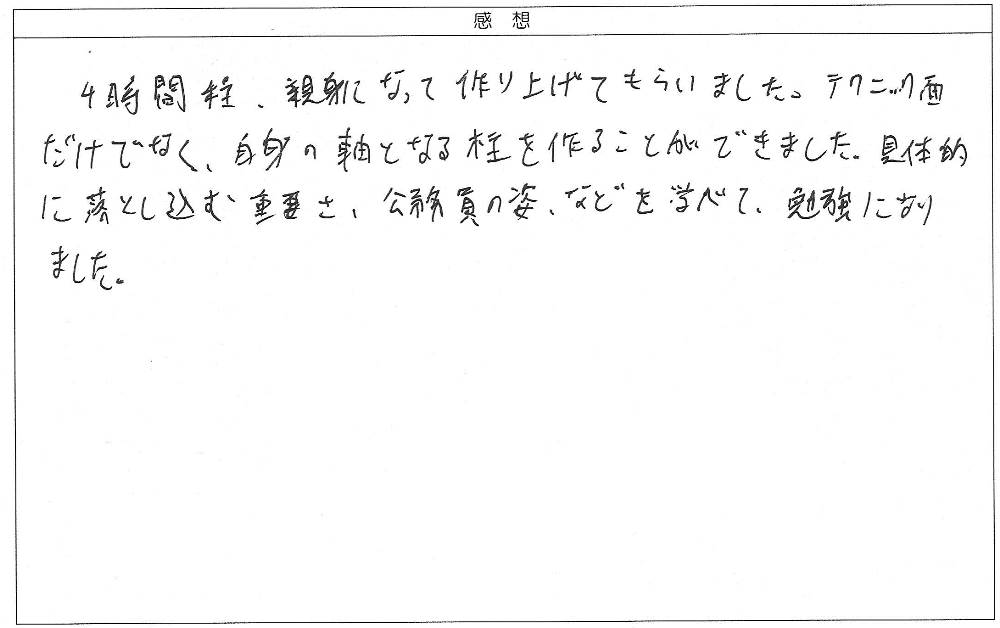 感想
4時間程、親身になって作り上げてもらいました。テクニック面
だけでなく、自身の軸となる柱を作ることができました。具体的
に落とし込む重要さ、公務員の姿、などを学べて、勉強になり
ました。